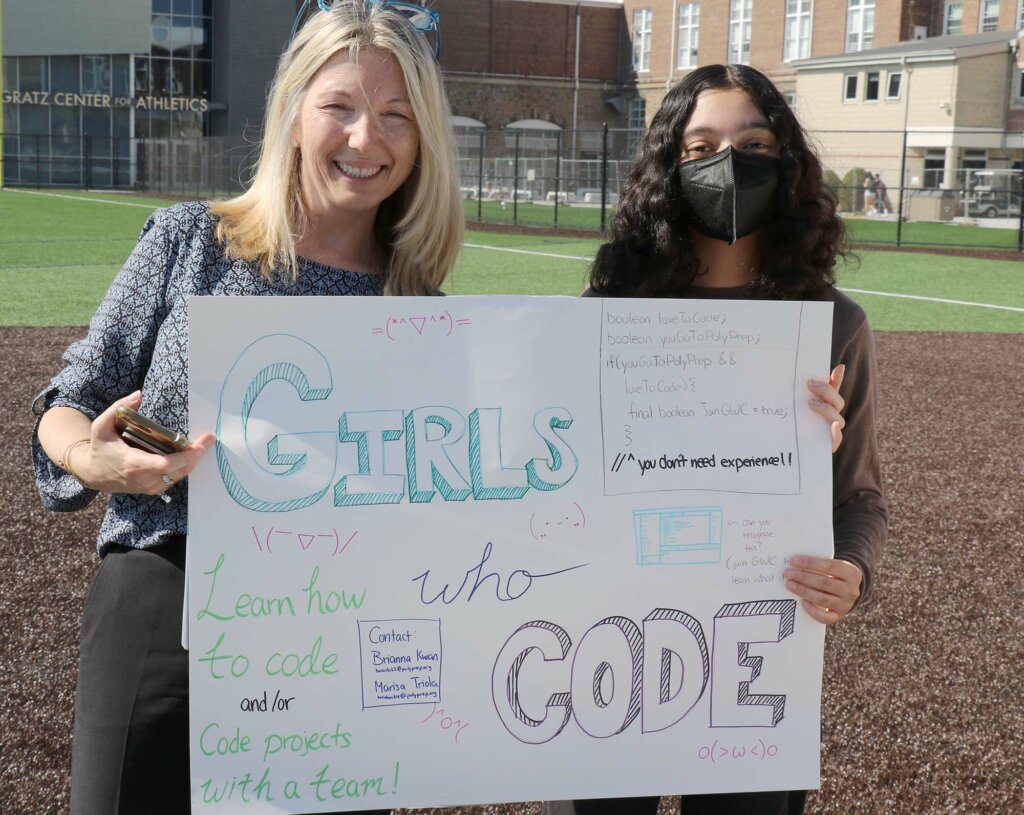 GRATZ CENTER FOR ATHLETICS
=(*^▽^*)=
GIRLS
boolean loveToCode;
boolean youGoToPolyPrep;
if(youGoToPolyPrep &&
loveToCode){
final boolean JoinGWC = true;
}
}
//^ you don't need experience!!
\(￣▽￣)/
who
← Can you
recognize
this?
(join GWC to
learn what it
CODE
Learn how
to code
and/or
Code projects
with a team!
Contact:
Brianna Kwan
Marisa Triola
o(>ω<)o